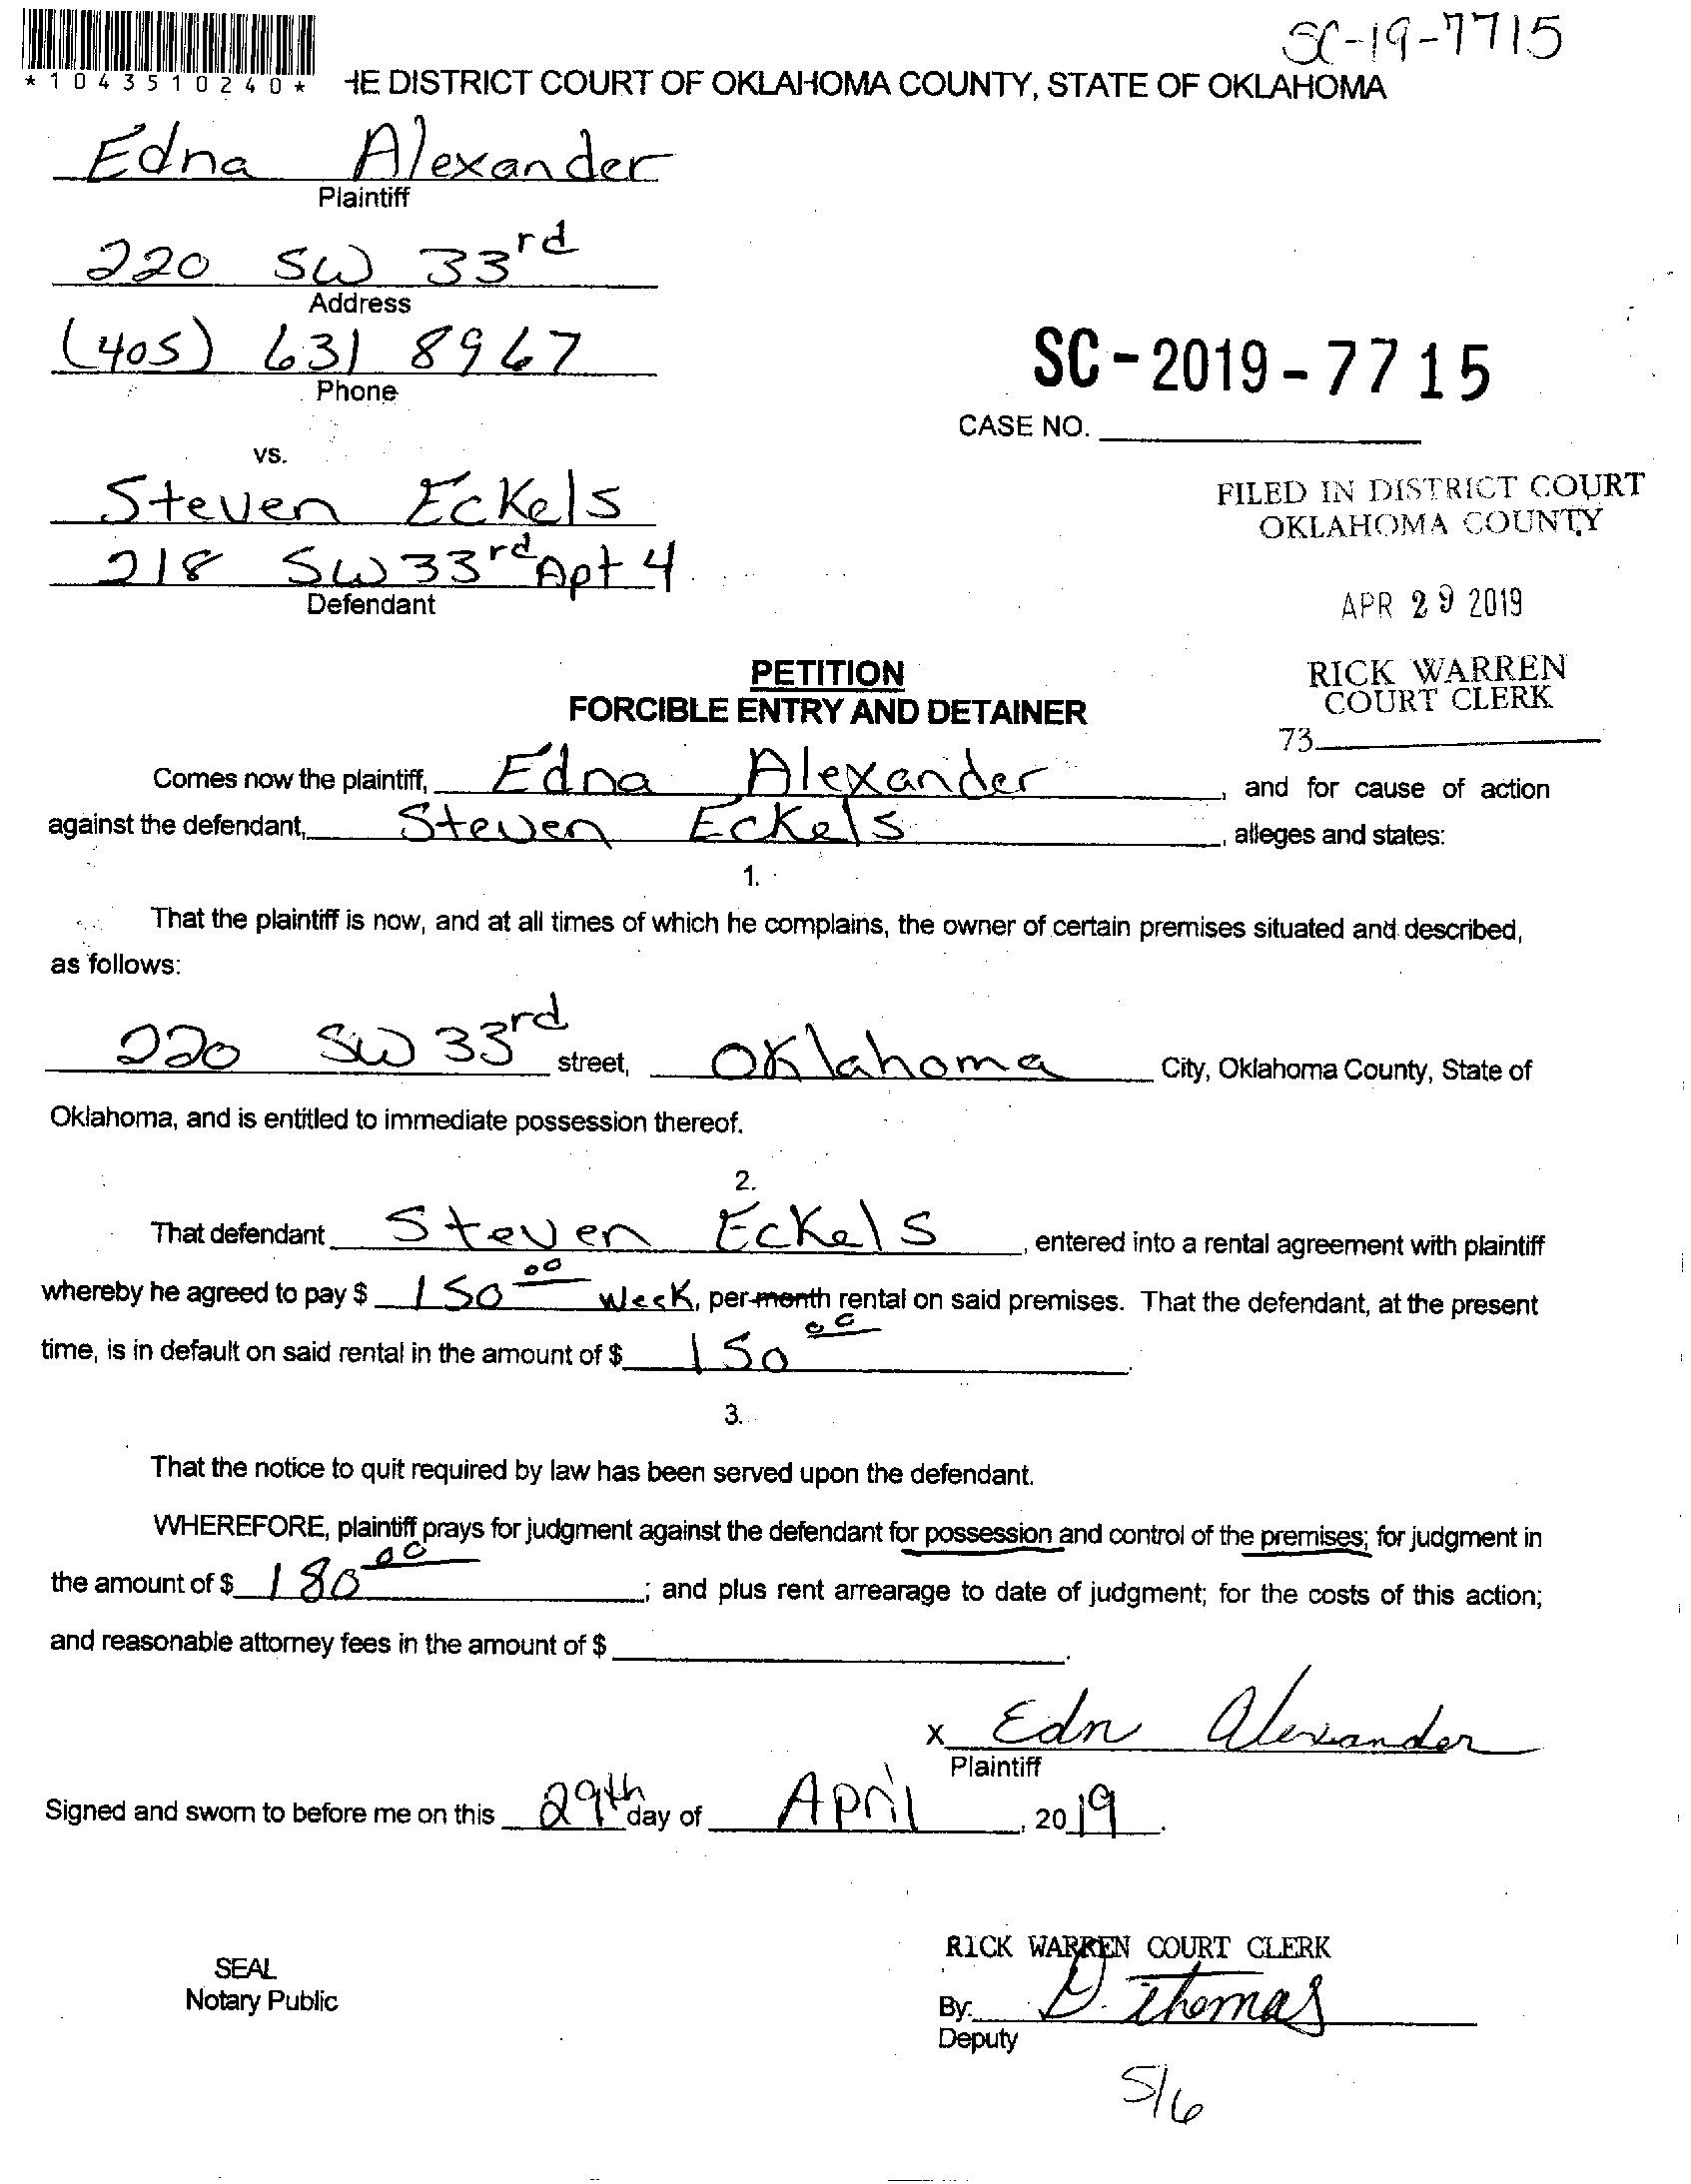 SC-19-7715
*1043510240*
HE DISTRICT COURT OF OKLAHOMA COUNTY, STATE OF OKLAHOMA
Edna Alexander
Plaintiff
220 SW 33rd
Address
(405) 631 8967
Phone
SC-2019-7715
CASE NO.
vs.
Steven Eckels
218 SW 33rd Apt 4
Defendant
FILED IN DISTRICT COURT
OKLAHOMA COUNTY
APR 29 2019
RICK WARREN
COURT CLERK
73
PETITION
FORCIBLE ENTRY AND DETAINER
Comes now the plaintiff, Edna Alexander, and for cause of action
against the defendant, Steven Eckels, alleges and states:
1.
That the plaintiff is now, and at all times of which he complains, the owner of certain premises situated and described,
as follows:
220 SW 33rd street, Oklahoma City, Oklahoma County, State of
Oklahoma, and is entitled to immediate possession thereof.
2.
That defendant Steven Eckels, entered into a rental agreement with plaintiff
whereby he agreed to pay $ 150 00 week, per month rental on said premises. That the defendant, at the present
time, is in default on said rental in the amount of $ 150 00.
3.
That the notice to quit required by law has been served upon the defendant.
WHEREFORE, plaintiff prays for judgment against the defendant for possession and control of the premises; for judgment in
the amount of $ 180 00; and plus rent arrearage to date of judgment; for the costs of this action;
and reasonable attorney fees in the amount of $ .
x Edn Alexander
Plaintiff
Signed and sworn to before me on this 29th day of April, 2019.
SEAL
Notary Public
RICK WARREN COURT CLERK
By: D. Thomas
Deputy
5/6